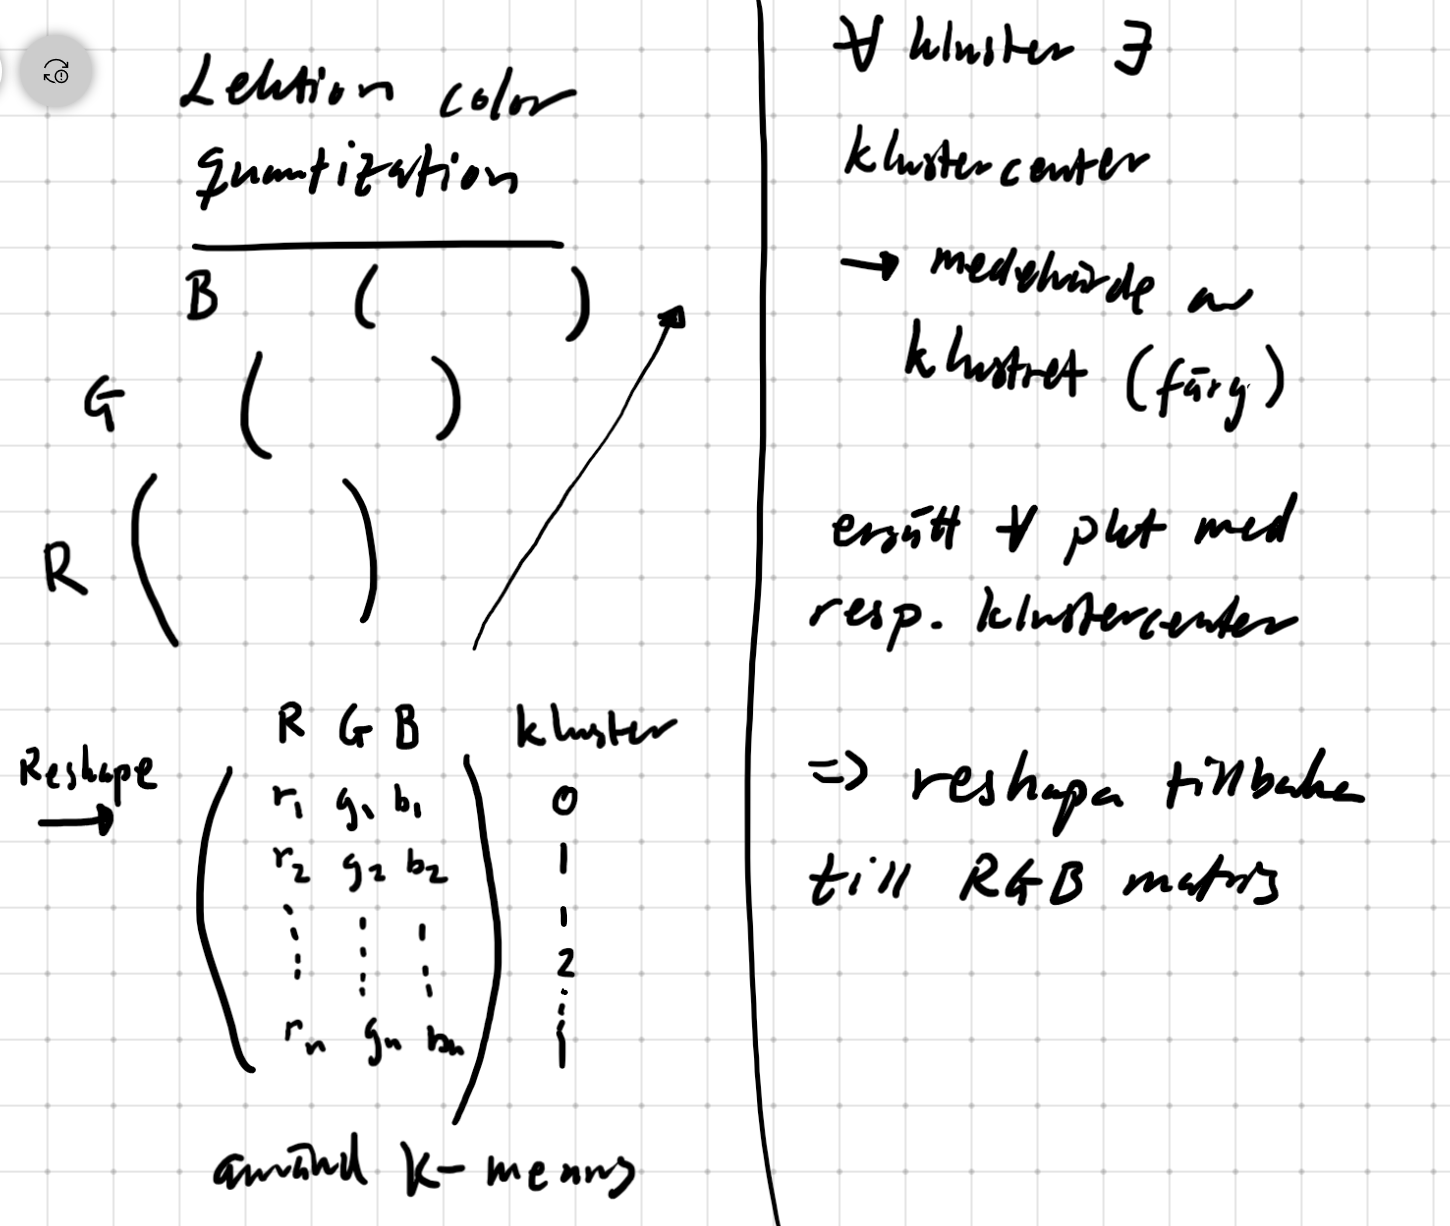 Lektion color
quantization
B ( )
G ( )
R ( )
Reshape
→
R G B kluster
r₁ g₁ b₁ 0
r₂ g₂ b₂ 1
⋮ ⋮ ⋮ 1
⋮ ⋮ ⋮ 2
⋮
rₙ gₙ bₙ 1
använd K-means
∀ kluster ∃
klustercenter
→ medelvärde av
klustret (färg)
ersätt ∀ pkt med
resp. klustercenter
=> reshapa tillbaka
till RGB matris